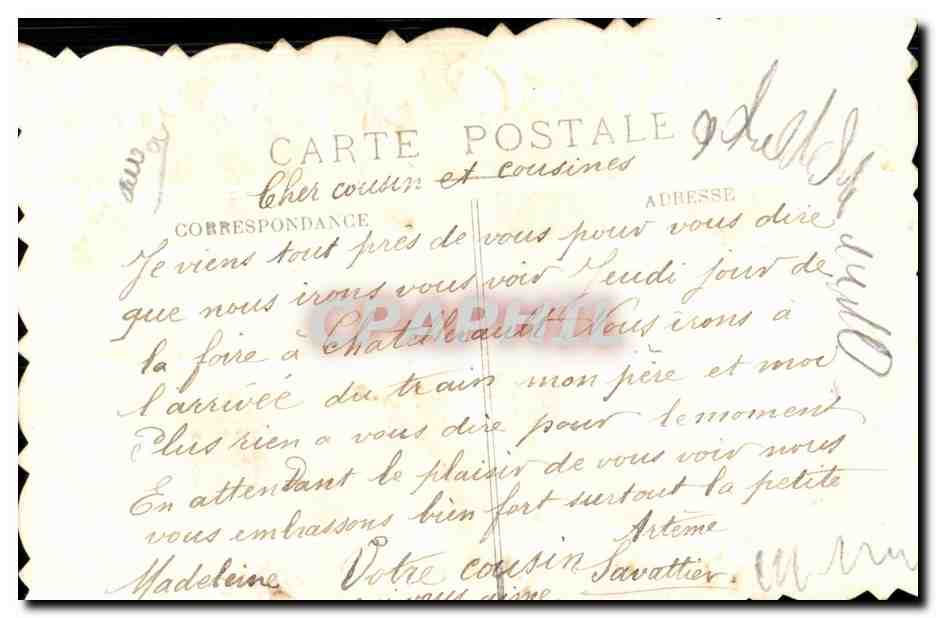 CARTE POSTALE
Cher cousin et cousines
CORRESPONDANCE
ADRESSE
Je viens tout près de vous pour vous dire
que nous irons vous voir Jeudi jour de
la foire à Chatellerault Nous irons à
l'arrivée du train mon père et moi
Plus rien a vous dire pour le moment
En attendant le plaisir de vous voir nous
vous embrassons bien fort surtout la petite
Madeleine Votre cousin Artème
Savattier.
qui vous aime
CPAPHIL